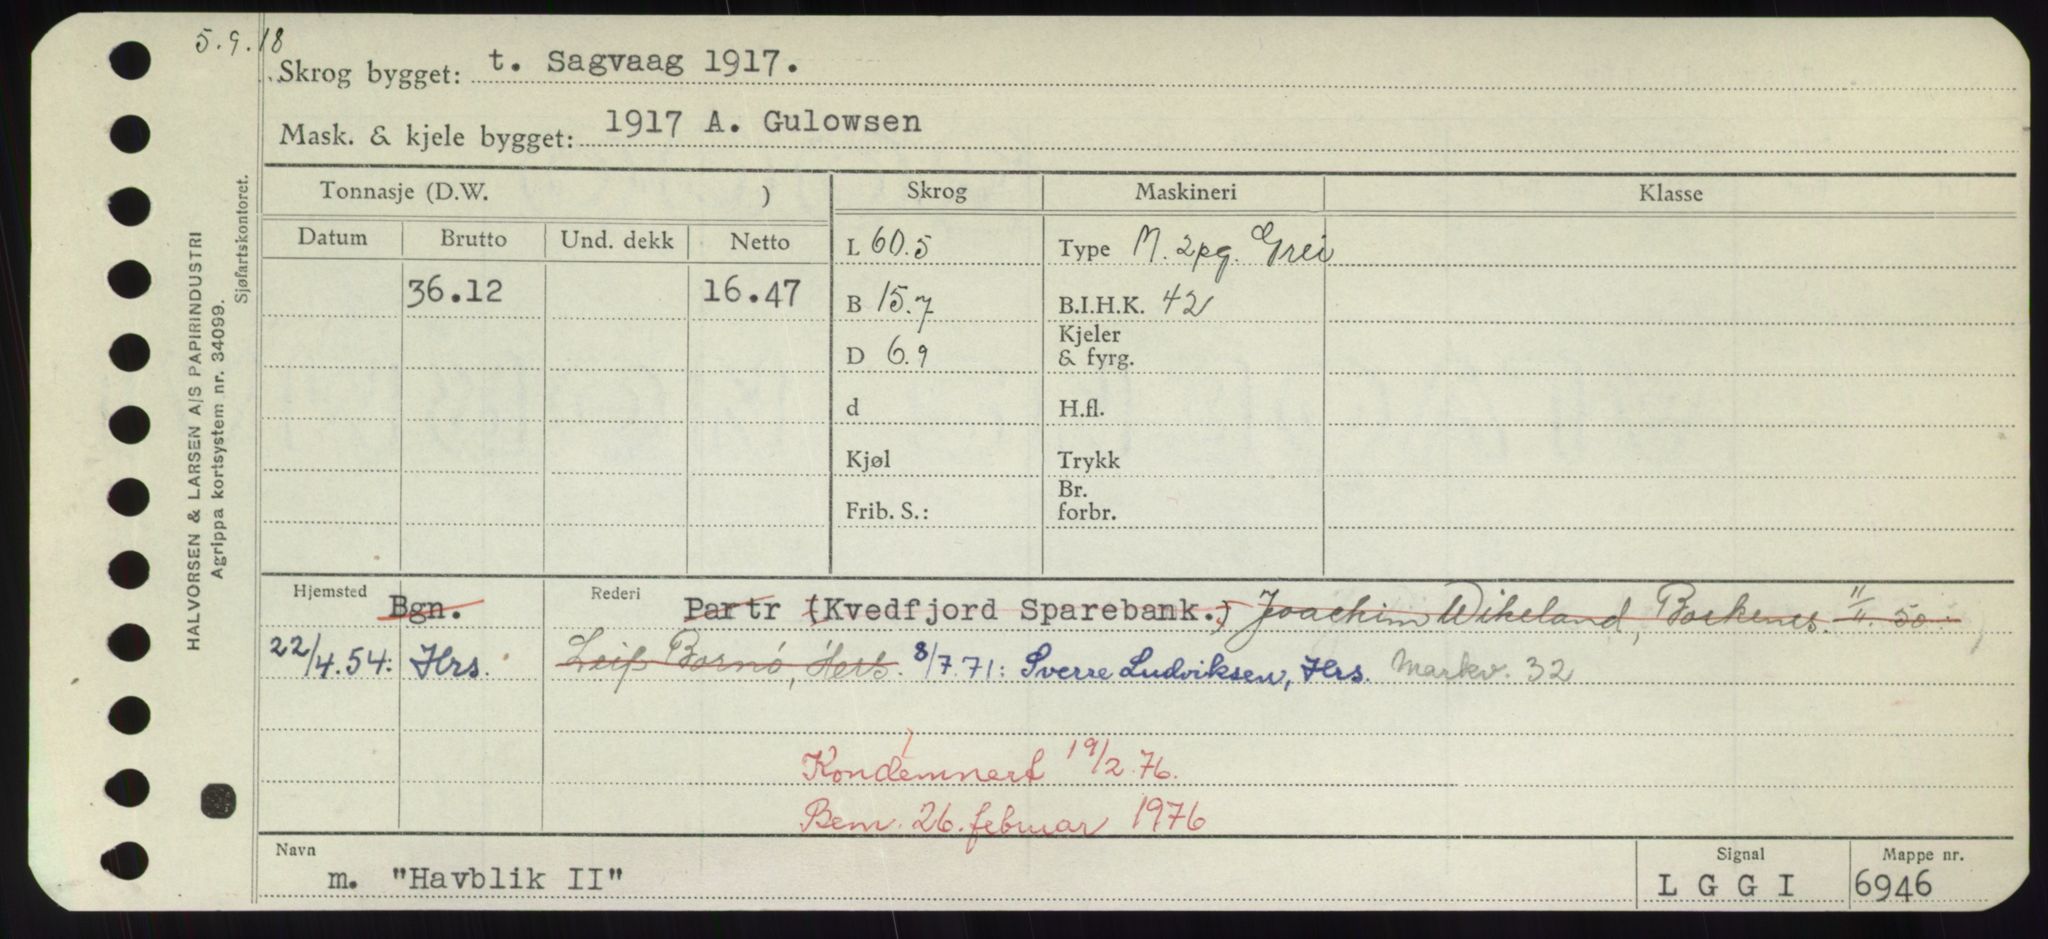 5.9.18
Skrog bygget: t. Sagvaag 1917.
Mask. & kjele bygget: 1917 A. Gulowsen
HALVORSEN & LARSEN A/S PAPIRINDUSTRI
Agrippa kortsystem nr. 34099.
Sjøfartskontoret.
Tonnasje (D.W. ) Skrog Maskineri Klasse
Datum Brutto Und. dekk Netto
L 60.5 Type M. 2pg. Grei
36.12 16.47 B 15.7 B.I.H.K. 42
D 6.9 Kjeler & fyrg.
d H.fl.
Kjøl Trykk
Frib. S.: Br. forbr.
Hjemsted Bgn. Rederi Partr (Kvedfjord Sparebank.) Joachim Wikeland, Borkenes. 11/11.50
22/4.54: Hrs. Leif Bornø, Herb. 8/7.71: Sverre Ludviksen, Hrs. Markv. 32
Kondemnert 19/2.76.
Bem. 26. februar 1976
Navn Signal Mappe nr.
m. "Havblik II" L G G I 6946